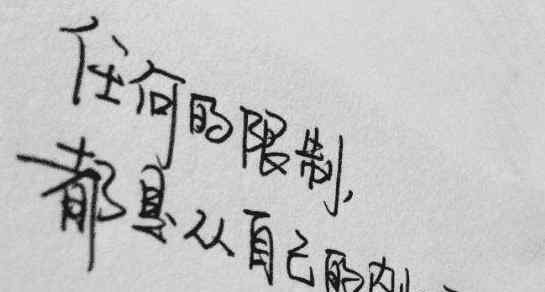 任何的限制,
都是从自己的内